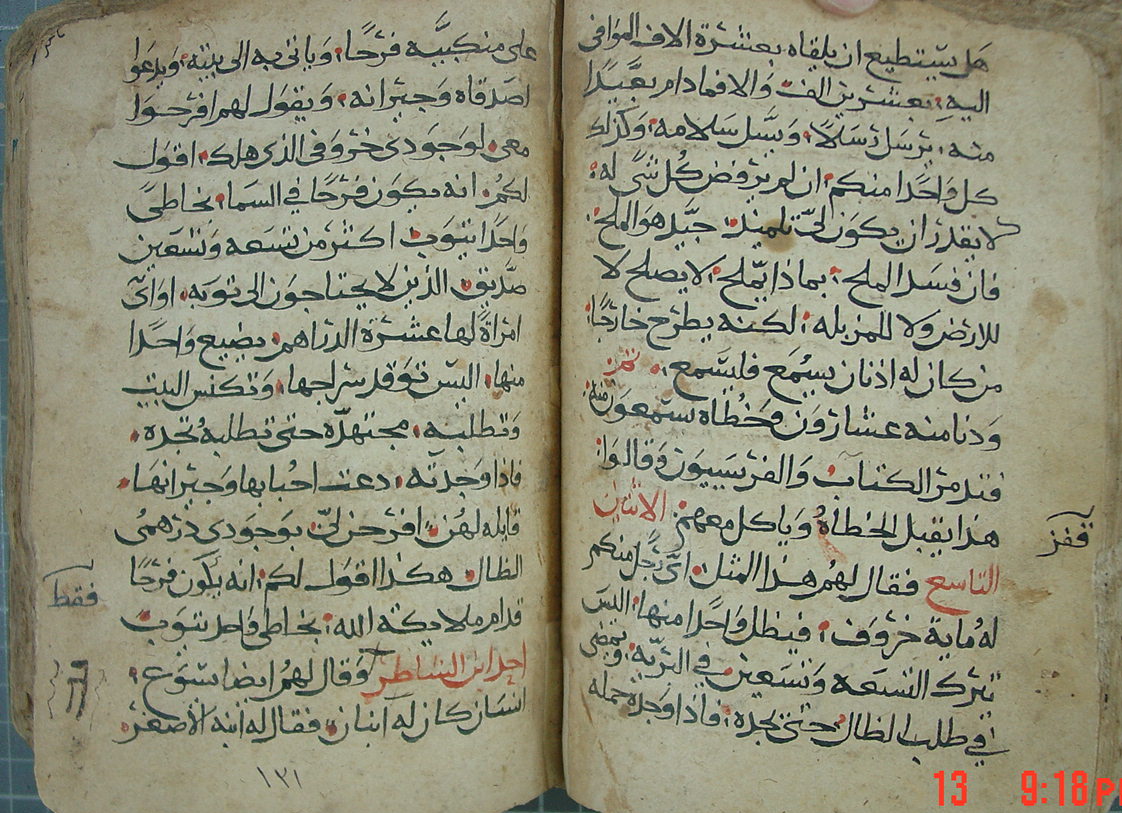 هل يستطيع ان يلقاه بعشرة الاف الموافي
اليه بعشرين الف والا فمادام بعيدا
منه يرسل رسلا ويسل سلامه وكذلك
كل واحدا منكم ان لم يرفض كل شي له
لا يقدر ان يكون لي تلميذ جيد هو الملح
فان فسد الملح بماذا يملح لا يصلح لا
للارض ولا للمزبله لكنه يطرح خارجا
من كان له اذنان يسمع فليسمع
ودنا منه عشارون وخطاه يستمعون منه
فتدمر الكتاب والفريسيون وقالوا
هذا يقبل الخطاة وياكل معهم الاثنين
التاسع فقال لهم هذا المثل اي رجل منكم
له ماية خروف فيظل واحدا منها اليس
يترك التسعه وتسعين في البريه ويمضي
في طلب الظال حتى يجده فاذا وجده حمله
على منكبيه فرحا وياتي به الى بيته ويدعوا
اصدقاه وجيرانه ويقول لهم افرحوا
معي لوجودي خروفي الذي هلك اقول
لكم انه يكون فرحا في السما بخاطي
واحدا يتوب اكثر من تسعه وتسعين
صديق الذين لا يحتاجون الى توبه او اي
امراة لها عشرة الدراهم يضيع واحدا
منها اليس توقد سراجها وتكنس البيت
وتطلبه مجتهدة حتى تطلبه تجده
فاذا وجدته دعت احبابها وجيرانها
قايله لهن افرحن لي بوجودي درهمي
الظال هكذا اقول لكم انه يكون فرحا
فقط
قدام ملايكة الله بخاطي واحد يتوب
احد ابن الشاطر وقال لهم ايضا يسوع
انسان كان له ابنان فقال له ابنه الاصغر
١٣١
13 9:18 P